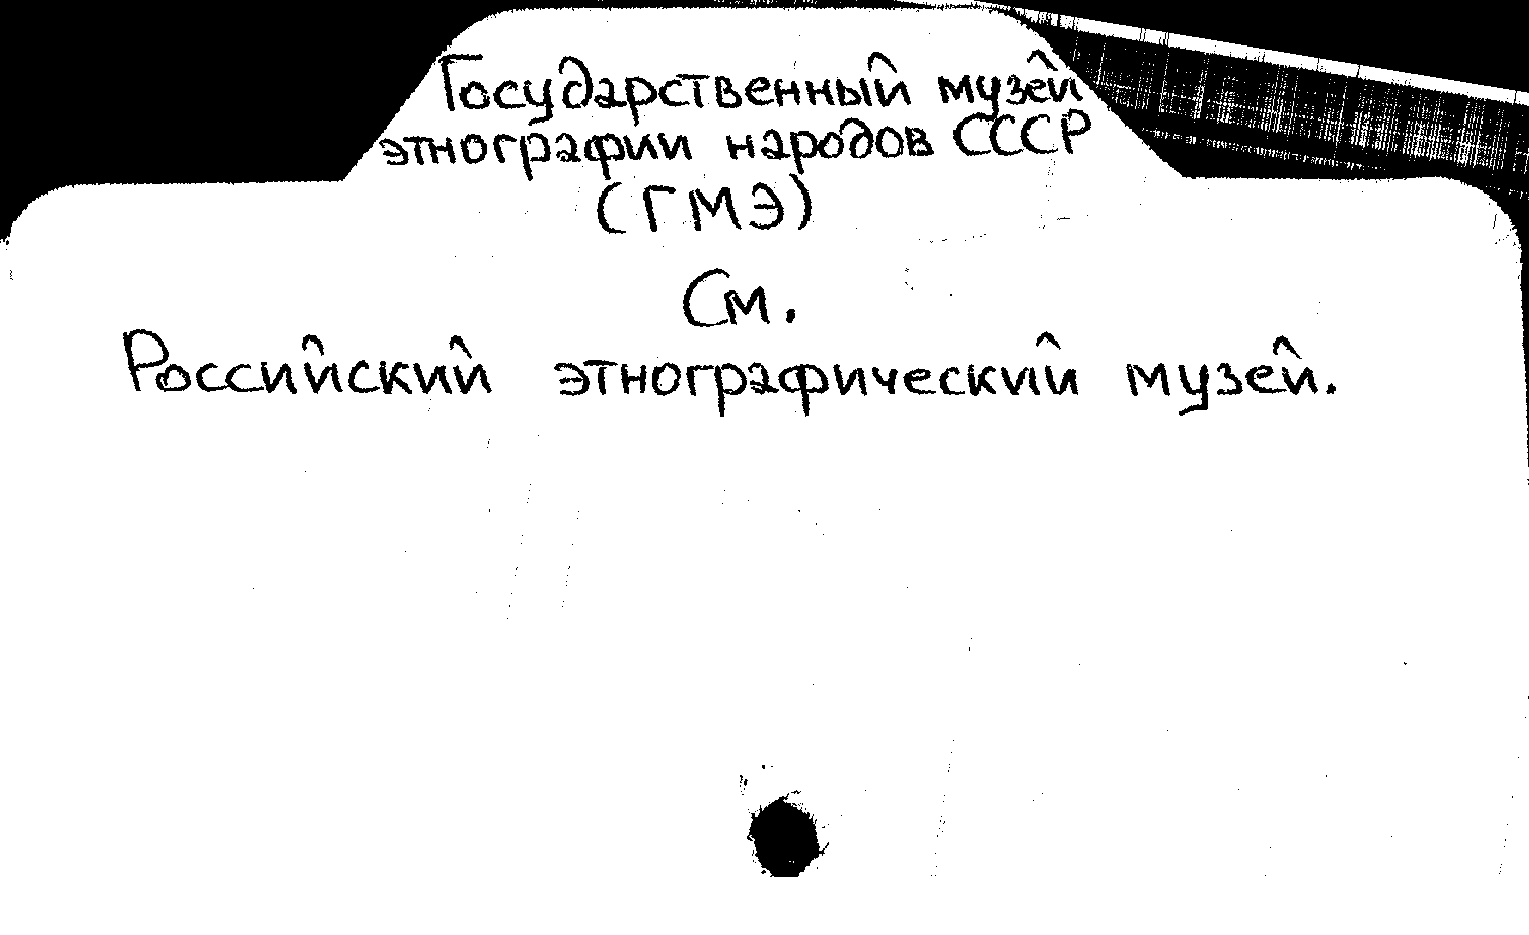 Государственный музей
этнографии народов СССР
(ГМЭ)
См.
Российский этнографический музей.